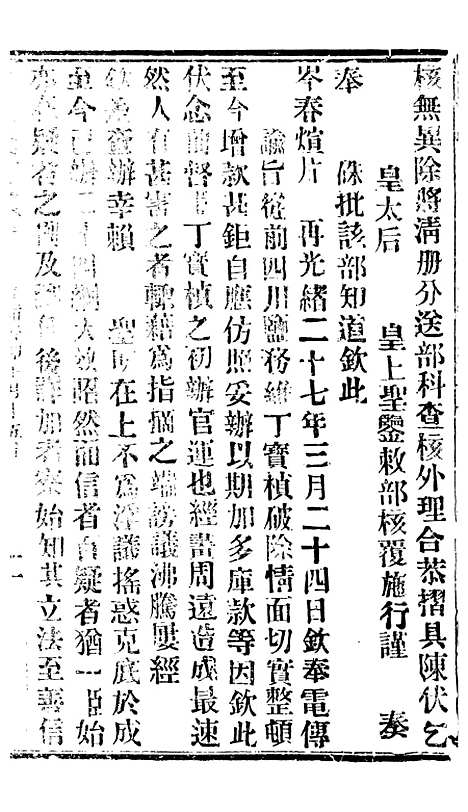 核無異除將清册分送部科查核外理合恭摺具陳伏乞
皇太后 皇上聖鑒敕部核覆施行謹 奏
奉 硃批該部知道欽此
岑春煊片 再光緒二十七年三月二十四日欽奉電傳
諭旨從前四川鹽務經丁寶楨破除情面切實整頓
至今增款甚鉅自應仿照妥辦以期加多庫款等因欽此
伏念前督臣丁寶楨之初辦官運也經營周遠造成最速
然人有甚害之者輒藉爲指摘之端謗議沸騰屢經
欽 查辦幸賴 聖明在上不爲浮議搖惑克底於成
至今已辦二十四綱大效昭然而信者自疑者猶一臣始
亦在疑者之列及 後詳加考察始知其立法至善信